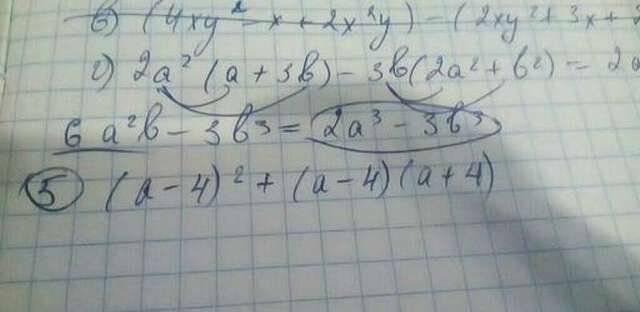 б) (4xy² - x + 2x²y) - (2xy² + 3x +
г) 2a² (a + 3b) - 3b (2a² + b²) = 2a
6 a²b - 3b³ = 2a³ - 3b³
5 (a - 4)² + (a - 4) (a + 4)